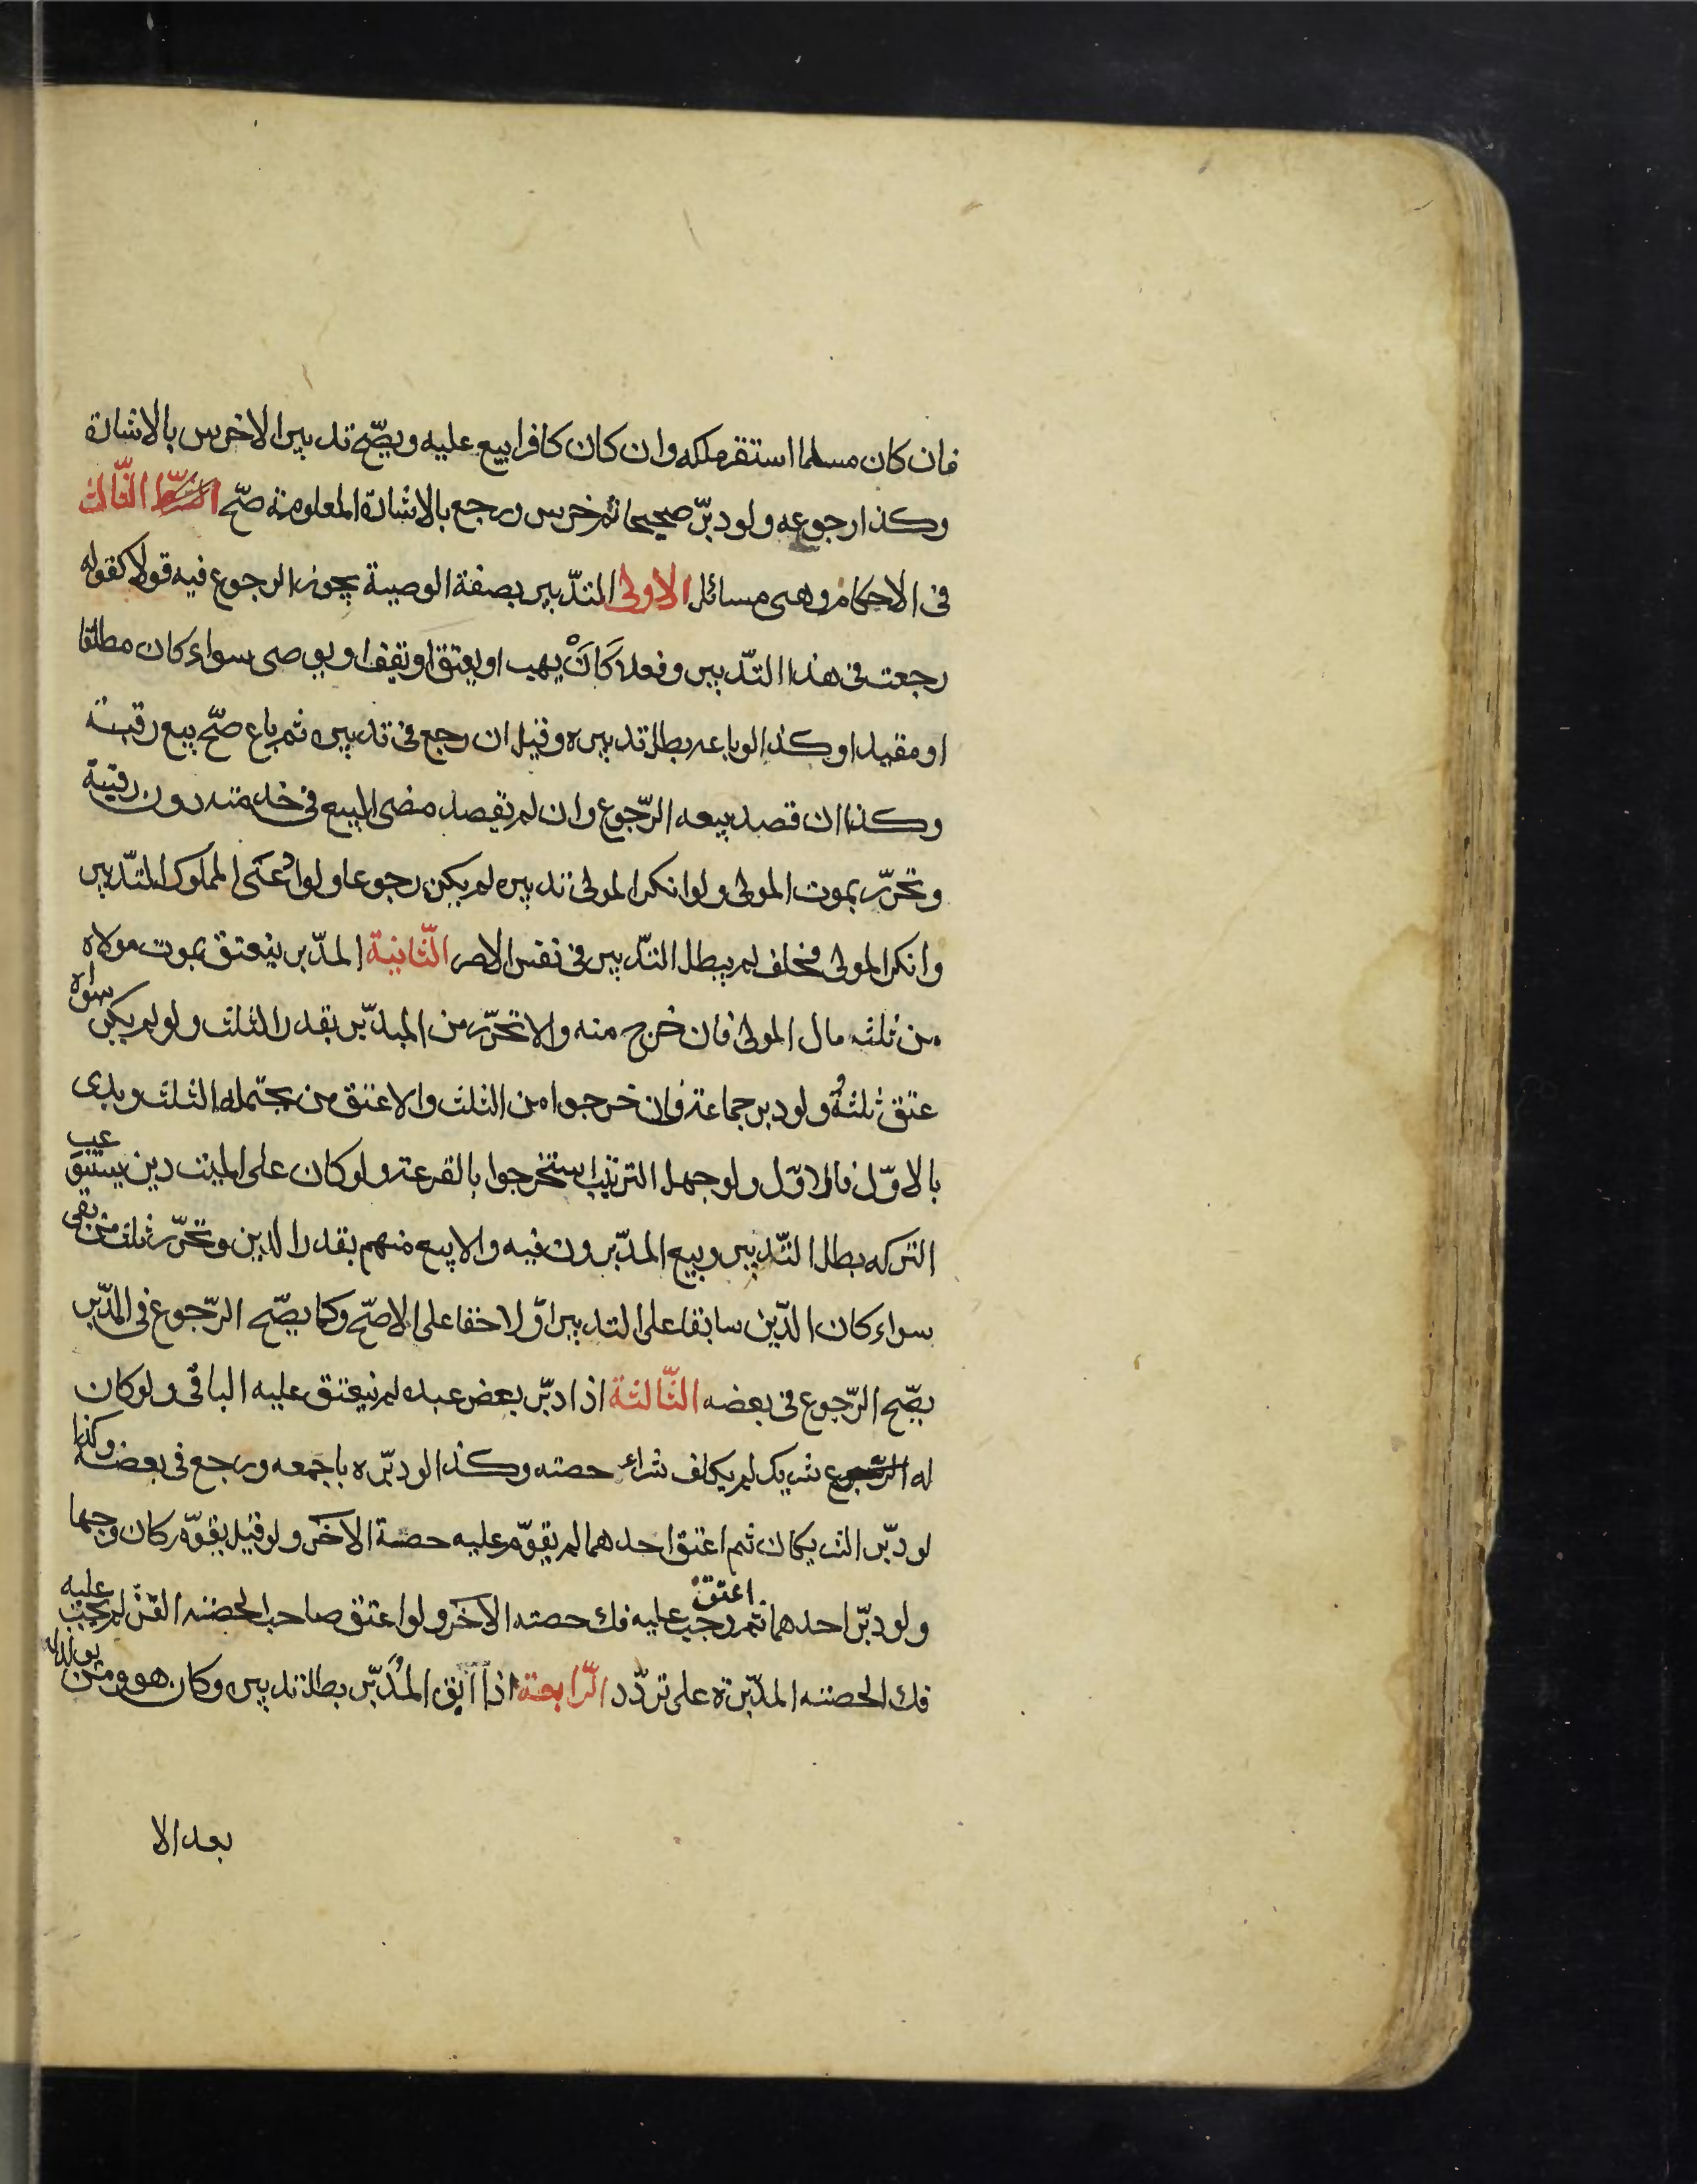 فان كان مسلما استقر ملكه وان كان كافرا بيع عليه ويصّح تدبير الاخرس بالاشارة
وكذا رجوعه ولو دبّر صحيحا ثم خرس ورجع بالاشارة المعلومة صّح الثّالث
فى الاحكام وهى مسائل الاولى التدّبير بصفة الوصية يجوز الرجوع فيه قولا كقوله
رجعت فى هذا التدّبير وفعلا كَاَنْ يهب او يعتق او يقف او يوصى سواء كان مطلقا
او مقيدا وكذا لو باعه بطل تدبيره وقيل ان رجع فى تدبيره ثم باع صّح بيع رقبته
وكذا ان قصد ببيعه الرّجوع وان لم يقصد مضى البيع فى خدمته دون رقبته
وتحرّر بموت المولى ولو انكر المولى تدبيره لم يكن رجوعا ولو ادّعى المملوك التدّبير
وانكر المولى فحلف لم يبطل التدّبير فى نفس الامر الثّانية المدّبر ينعتق بموت مولاه
من ثلث مال المولى فان خرج منه والا تحرّر من المدبّر بقدر الثلث ولو لم يكن سواه
عتق ثلثهُ ولو دبر جماعة فان خرجوا من الثلث والا عتق من يحتمله الثلث ويبدى
بالاوّل فالاوّل ولو جهل الترتيب استخرجوا بالقرعة ولو كان على الميت دين يستوعب
التركه بطل التّدبير وبيع المدّبرون فيه والا بيع منهم بقدر الدين وتحرّر ثلث من بقى
سواء كان الدّين سابقا على التدبير او لاحقا على الاصّح وكما يصّح الرّجوع فى المدّبر
يصّح الرّجوع فى بعضه الثّالثة اذا دبّر بعض عبده لم ينعتق عليه الباقى ولو كان
له شريك لم يكلف شراء حصته وكذا لو دبّره باجمعه ورجع فى بعضه وكذا
لو دبّر الشريكان ثم اعتق احدهما لم يقوّم عليه حصة الاخر ولو قيل يقوّم كان وجها
ولو دبّر احدهما ثم اعتق وجب عليه فك حصته الاخر ولو اعتق صاحب الحصته القنّ لم يجب عليه
فك الحصته المدّبرة على تردّد الرّابعة اذا ابق المُدَبّر بطل تدبيره وكان هو ومن يولد له
بعد الا